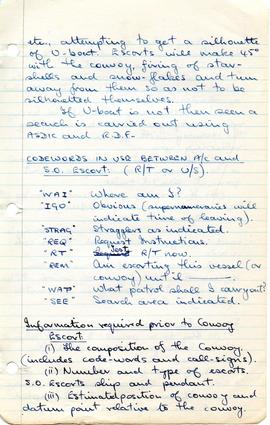 etc., attempting to get a silhouette
of U-boat. Escorts will make 45°
with the convoy, firing of star-
shells and snow-flakes and turn
away from them so as not to be
silhouetted themselves.
If U-boat is not then seen a
search is carried out using
ASDIC and R.D.F.
CODEWORDS IN USE BETWEEN A/c and
S.O. ESCORT: (R/T or V/S).
"WAI" Where am I?
"IGO" Obvious (supernumeraries will
indicate time of leaving).
"STRAG" Stragglers as indicated.
"REQ" Request Instructions.
"RT" Test R/T now.
"REM" Am escorting this vessel (or
convoy) until —
"WAP" What patrol shall I carry out?
"SEE" Search area indicated.
Information required prior to Convoy
Escort.
(i) The composition of the Convoy
(includes code-words and call-signs).
(ii) Number and type of escorts.
S.O. Escorts ship and pendant.
(iii) Estimated position of convoy and
datum point relative to the convoy.